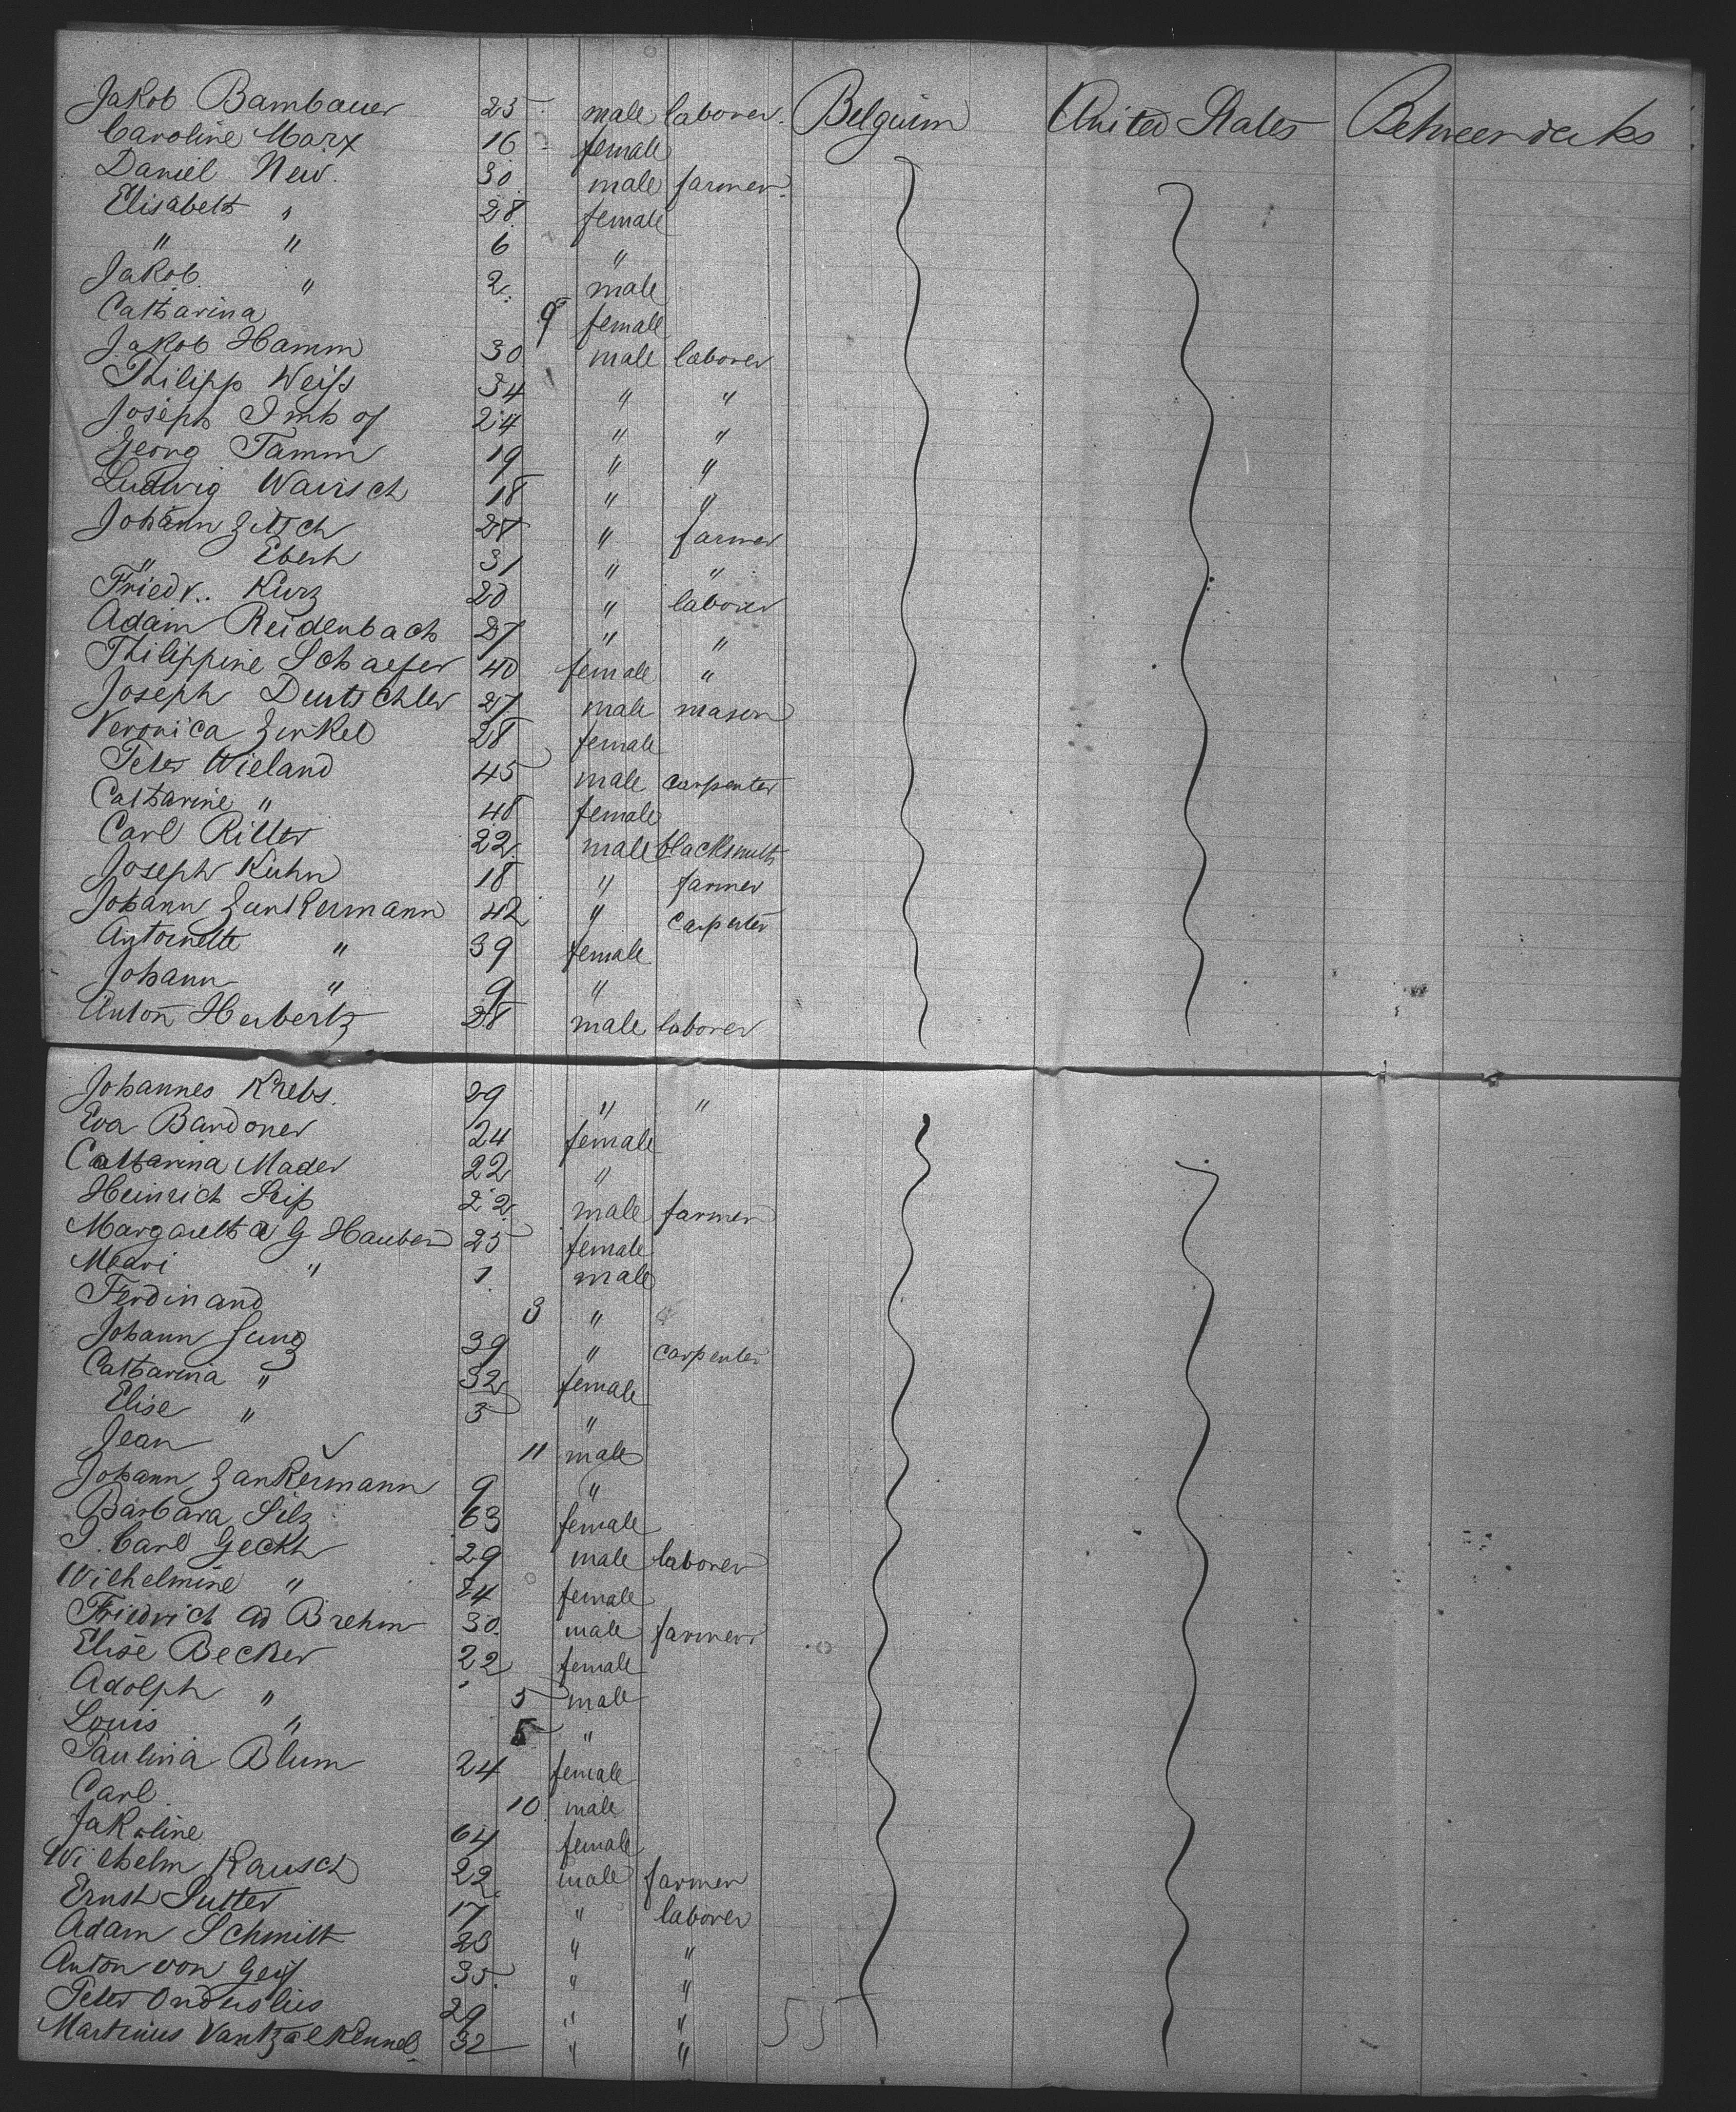 Jakob Bambauer 25 male laborer Belguim United States Betweendeks
Caroline Marx 16 female
Daniel New. 30 male farmer
Elisabeth " 28 female
" " 6 "
Jakob " 2 male
Catharina 9 female
Jakob Hamm 30 male laborer
Philipp Weiss 34 " "
Joseph Imhof 24 " "
Georg Tamm 19 " "
Ludwig Warisch 18 " "
Johann Zitsch 28 " farmer
" Ebert 31 " "
Friedr. Kurz 20 " laborer
Adam Reidenbach 27 " "
Philippine Schaefer 40 female "
Joseph Deutschler 27 male mason
Veronica Zinkel 28 female
Peter Wieland 45 male carpenter
Catharine " 48 female
Carl Ritter 22 male blacksmith
Joseph Kuhn 18 " farmer
Johann Zankermann 42 " carpenter
Antoinette " 39 female
Johann " 9 "
Anton Herbertz 28 male laborer
Johannes Krebs. 29 " "
Eva Bardoner 24 female
Catharina Mader 22 "
Heinrich Seip 22 male farmer
Margaretha G Hauber 25 female
Meari " 1 male
Ferdinand 3 "
Johann Jung 39 " carpenter
Catharina " 32 female
Elise " 3 "
Jean 11 male
Johann Zankermann 9 "
Barbara Silz 63 female
J. Carl Geckh 29 male laborer
Wilhelmine " 24 female
Friedrich Ad Brehm 30 male farmer
Elise Becker 22 female
Adolph " 5 male
Louis " 5 "
Paulina Blum 24 female
Carl 10 male
Jakoline 64 female
Wilhelm Rausch 22 male farmer
Ernst Sutter 17 " laborer
Adam Schmitt 23 " "
Anton von Geyf 35 " "
Peter 29 " "
Martinus 32 " "
55